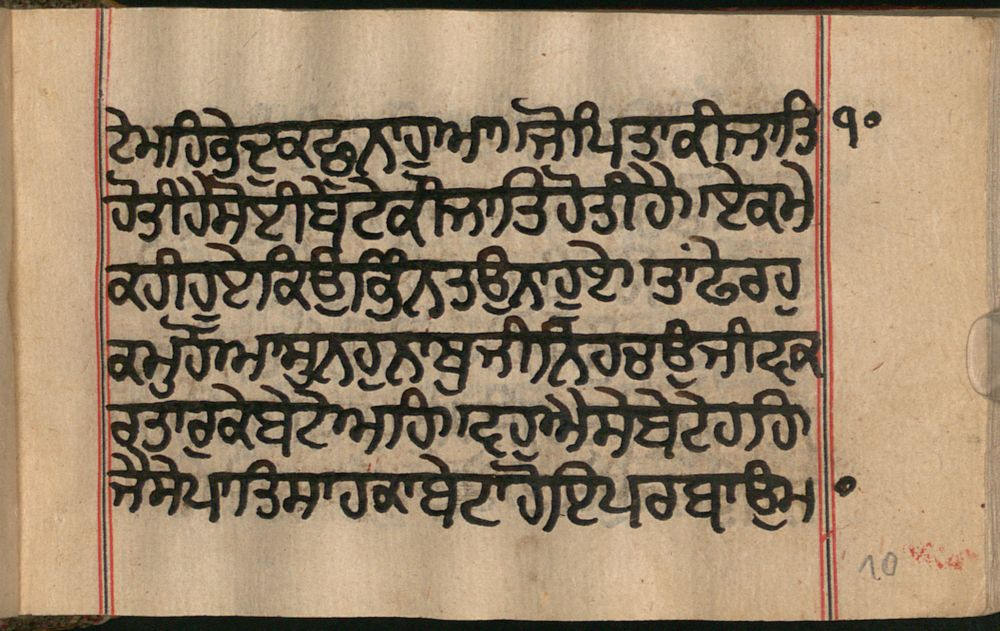 ਟੇਮਹਿਕੁਛੁਕਛੁਨਾਹੁਆ।ਜੋਪਿਤਾਕੀਜਾਤਿ ੧੦
ਹੋਤੀਹੈਸੋਈਬੇਟੇਕੀਜਾਤਿਹੋਤੀਹੈ।ਏਕਮੇ
ਕਹੀਹੁਏਕਿਉਕਿਨਤਉਨਾਹੁਏ।ਤਾਂਫੇਰਹੁ
ਕਮੁਹੋਆਸੁਨਹੁਨਾਬੁਜੀ।ਨਿਹਚਉਜੀਇਕ
ਰਤਾਰੁਕੇਬੇਟੇਆਹਿ।ਇਹੁਐਸੇਬੇਟੇਹਹਿ।
ਜੈਸੇਪਾਤਿਸਾਹਕਾਬੇਟਾਹੋਇਪਰਬਾਉਸ ੦
10